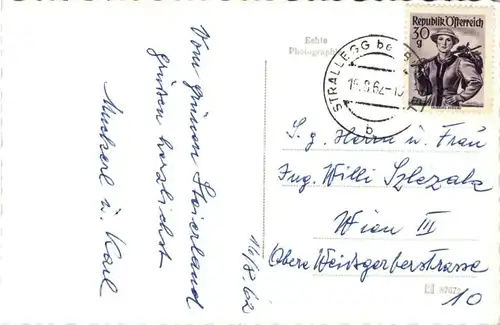 Echte
Photographie
Republik Österreich
30
g
STRALLEGG be
15.8.62-1
b
Vom grünen Steierland
grüßen herzlichst
Muckerl u. Karl
16/8.62
S. g. Herrn u. Frau
Ing. Willi Szlezak
Wien III
Obere Weissgerberstrasse
10